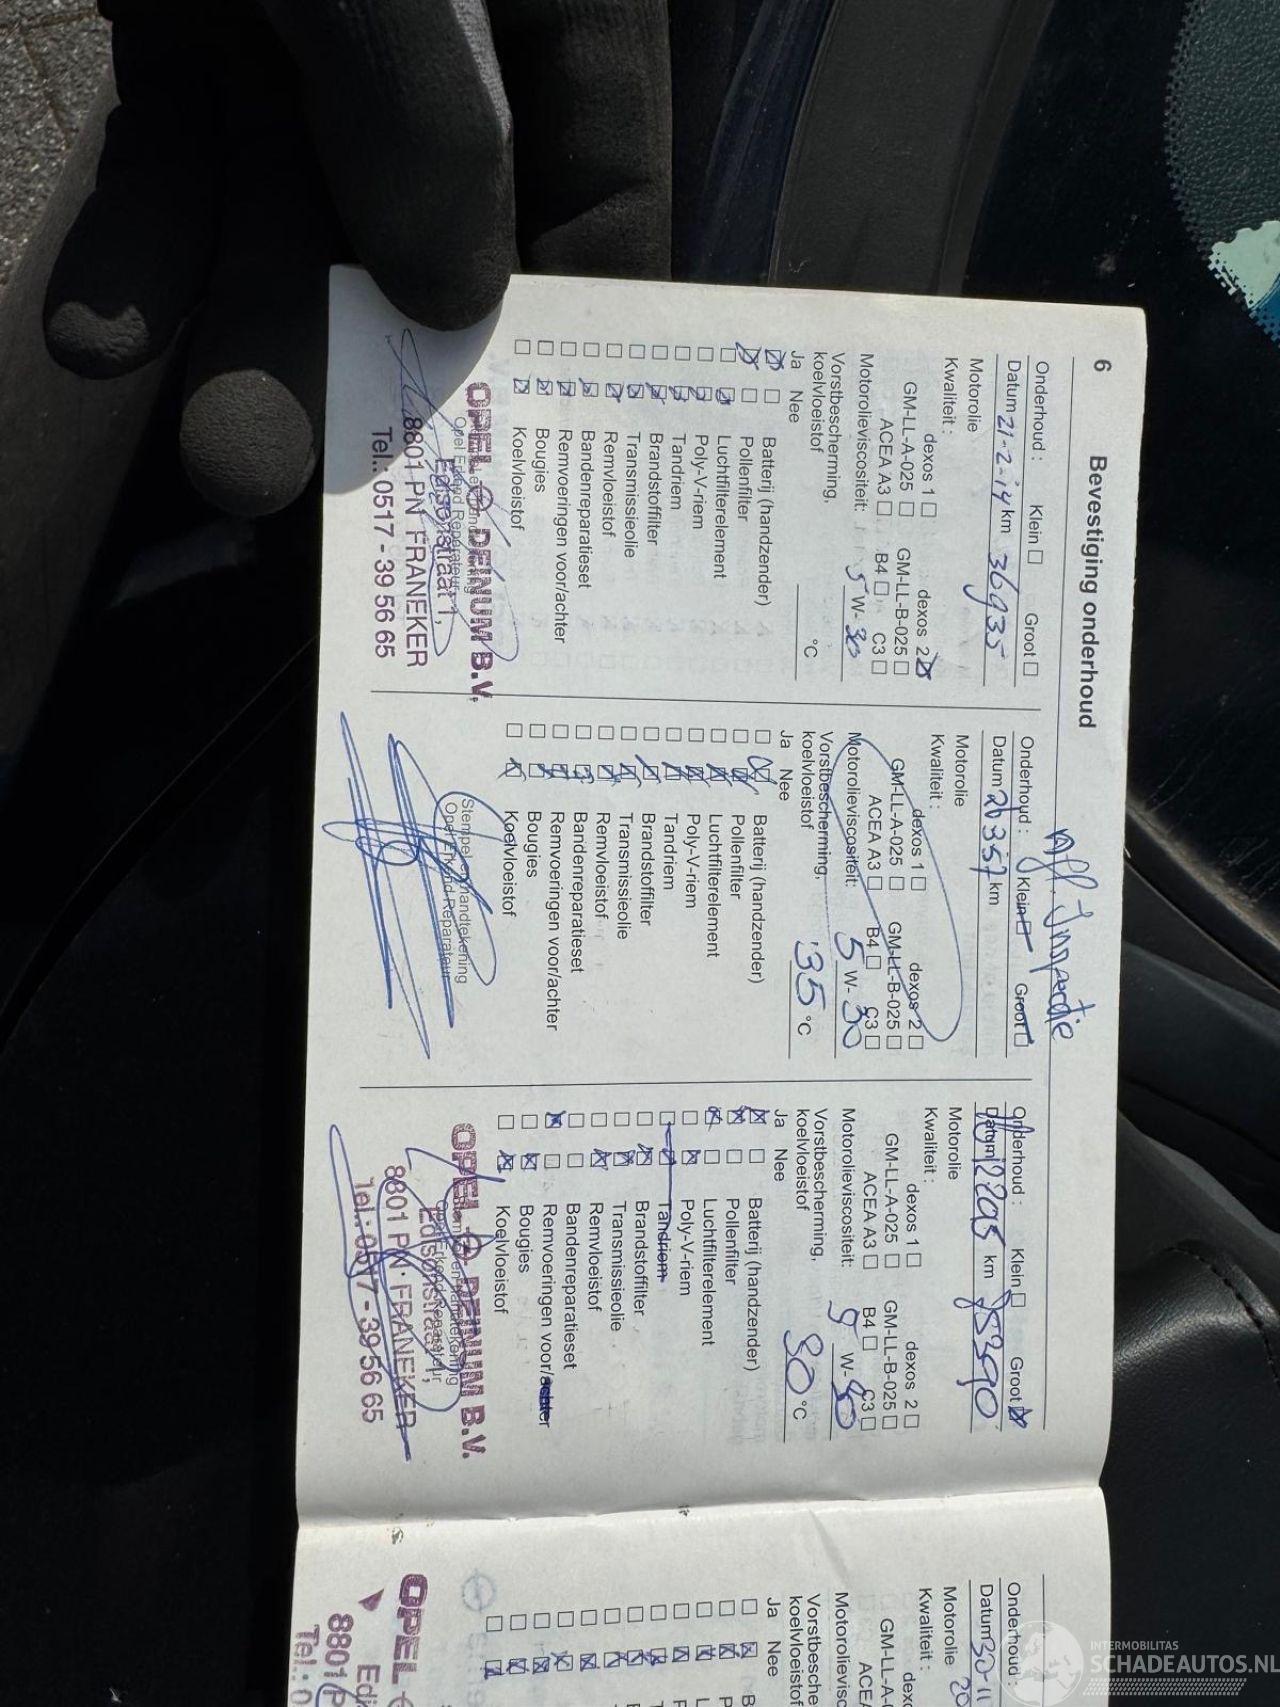 6 Bevestiging onderhoud
Onderhoud : Klein Groot
Datum 21-2-14 km 36935
Motorolie
Kwaliteit :
dexos 1 dexos 2
GM-LL-A-025 GM-LL-B-025
ACEA A3 B4 C3
Motorolieviscositeit: 5 W- 30
Vorstbescherming,
koelvloeistof °C
Ja Nee
Batterij (handzender)
Pollenfilter
Luchtfilterelement
Poly-V-riem
Tandriem
Brandstoffilter
Transmissieolie
Remvloeistof
Bandenreparatieset
Remvoeringen voor/achter
Bougies
Koelvloeistof
OPEL DEINUM B.V.
Opel Erkend Reparateur
Edisonstraat 1,
8801 PN FRANEKER
Tel.: 0517 - 39 56 65
Afl. Inspectie
Onderhoud : Klein Groot
Datum 26357 km
Motorolie
Kwaliteit :
dexos 1 dexos 2
GM-LL-A-025 GM-LL-B-025
ACEA A3 B4 C3
Motorolieviscositeit: 5 W- 30
Vorstbescherming,
koelvloeistof -35 °C
Ja Nee
Batterij (handzender)
Pollenfilter
Luchtfilterelement
Poly-V-riem
Tandriem
Brandstoffilter
Transmissieolie
Remvloeistof
Bandenreparatieset
Remvoeringen voor/achter
Bougies
Koelvloeistof
Stempel handtekening
Opel Erkend Reparateur
Onderhoud : Klein Groot
Datum km
Motorolie
Kwaliteit :
dexos 1 dexos 2
GM-LL-A-025 GM-LL-B-025
ACEA A3 B4 C3
Motorolieviscositeit: W-
Vorstbescherming,
koelvloeistof 30 °C
Ja Nee
Batterij (handzender)
Pollenfilter
Luchtfilterelement
Poly-V-riem
Tandriem
Brandstoffilter
Transmissieolie
Remvloeistof
Bandenreparatieset
Remvoeringen voor/achter
Bougies
Koelvloeistof
OPEL DEINUM B.V.
Opel Erkend Reparateur
Edisonstraat 1,
8801 PN FRANEKER
Tel.: 0517 - 39 56 65
Onderhoud :
Datum 30-11
Motorolie
Kwaliteit :
dexo
GM-LL-A-
ACEA
Motorolievisc
Vorstbesche
koelvloeisto
Ja Nee
OPEL
Edi
8801 P
Tel.: 0
INTERMOBILITAS
SCHADEAUTOS.NL